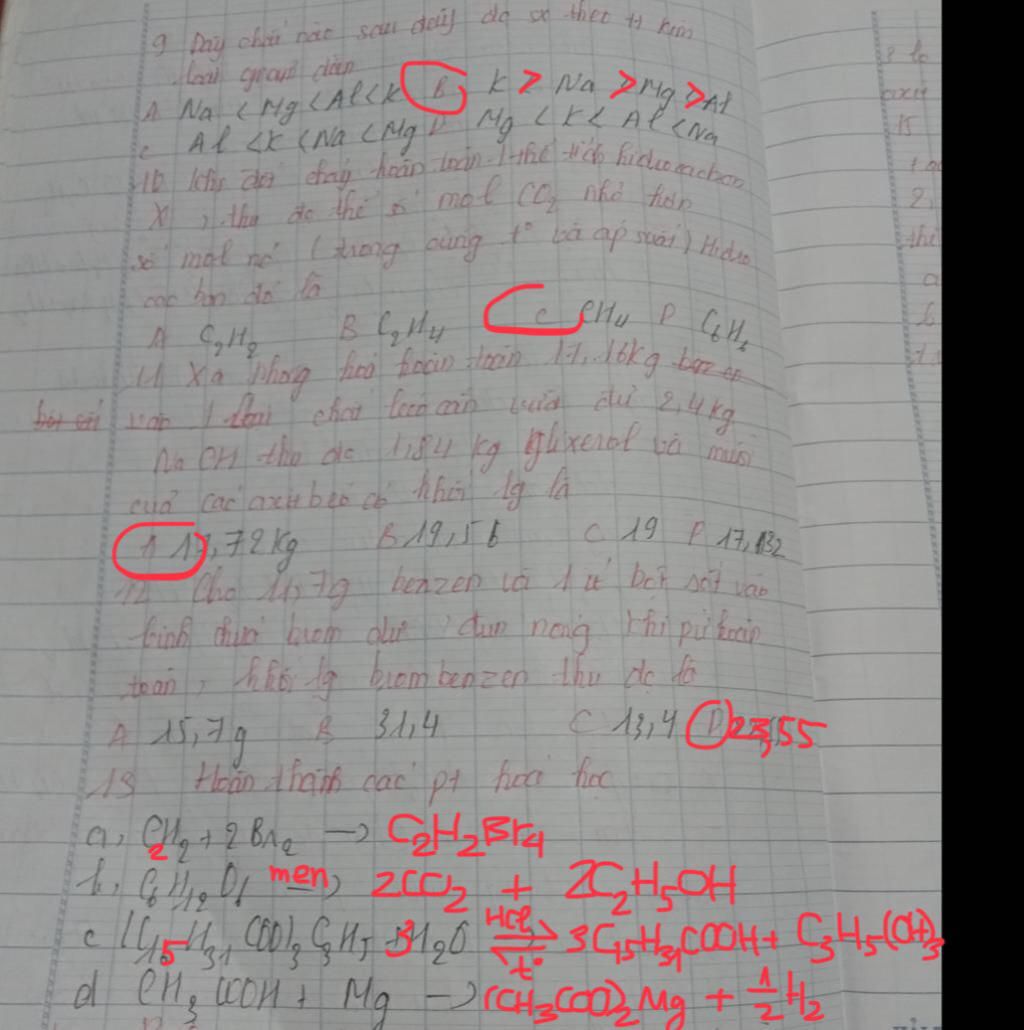 9 Dãy chất nào sau đây đc sx theo tt kim
loại giảm dần
A Na < Mg < Al < K B K > Na > Mg > Al
C Al < K < Na < Mg D Mg < K < Al < Na
10 Khi đốt cháy hoàn toàn 1 thể tích hidrocacbon
X, thu đc thể số mol CO2 nhỏ hơn
số mol nc (trong cùng t° và áp suất) Hidro
cac bon đó là
A C2H2 B C2H4 C CH4 D C6H6
11 Xà phòng hoá hoàn toàn 17,16kg
1 loại chất béo cần vừa đủ 2,4kg
NaOH thu đc 1,84 kg glixerol và muối
của các axit béo có khối lg là
A 17,72kg B 19,56 C 19 D 17,832
12 Cho 11,7g benzen và 1 ít bột sắt vào
bình chứa brom dư đun nóng khi pứ hoàn
toàn, khối lg brombenzen thu đc là
A 15,7g B 31,4 C 13,4 D 23,55
13 Hoàn thành các pt hoá học
a, C2H2 + 2Br2 → C2H2Br4
b, C6H12O6 men → 2CO2 + 2C2H5OH
c (C15H31COO)3C3H5 + 3H2O HCl ⇌ t° 3C15H31COOH + C3H5(OH)3
d CH3COOH + Mg → (CH3COO)2Mg + 1/2 H2